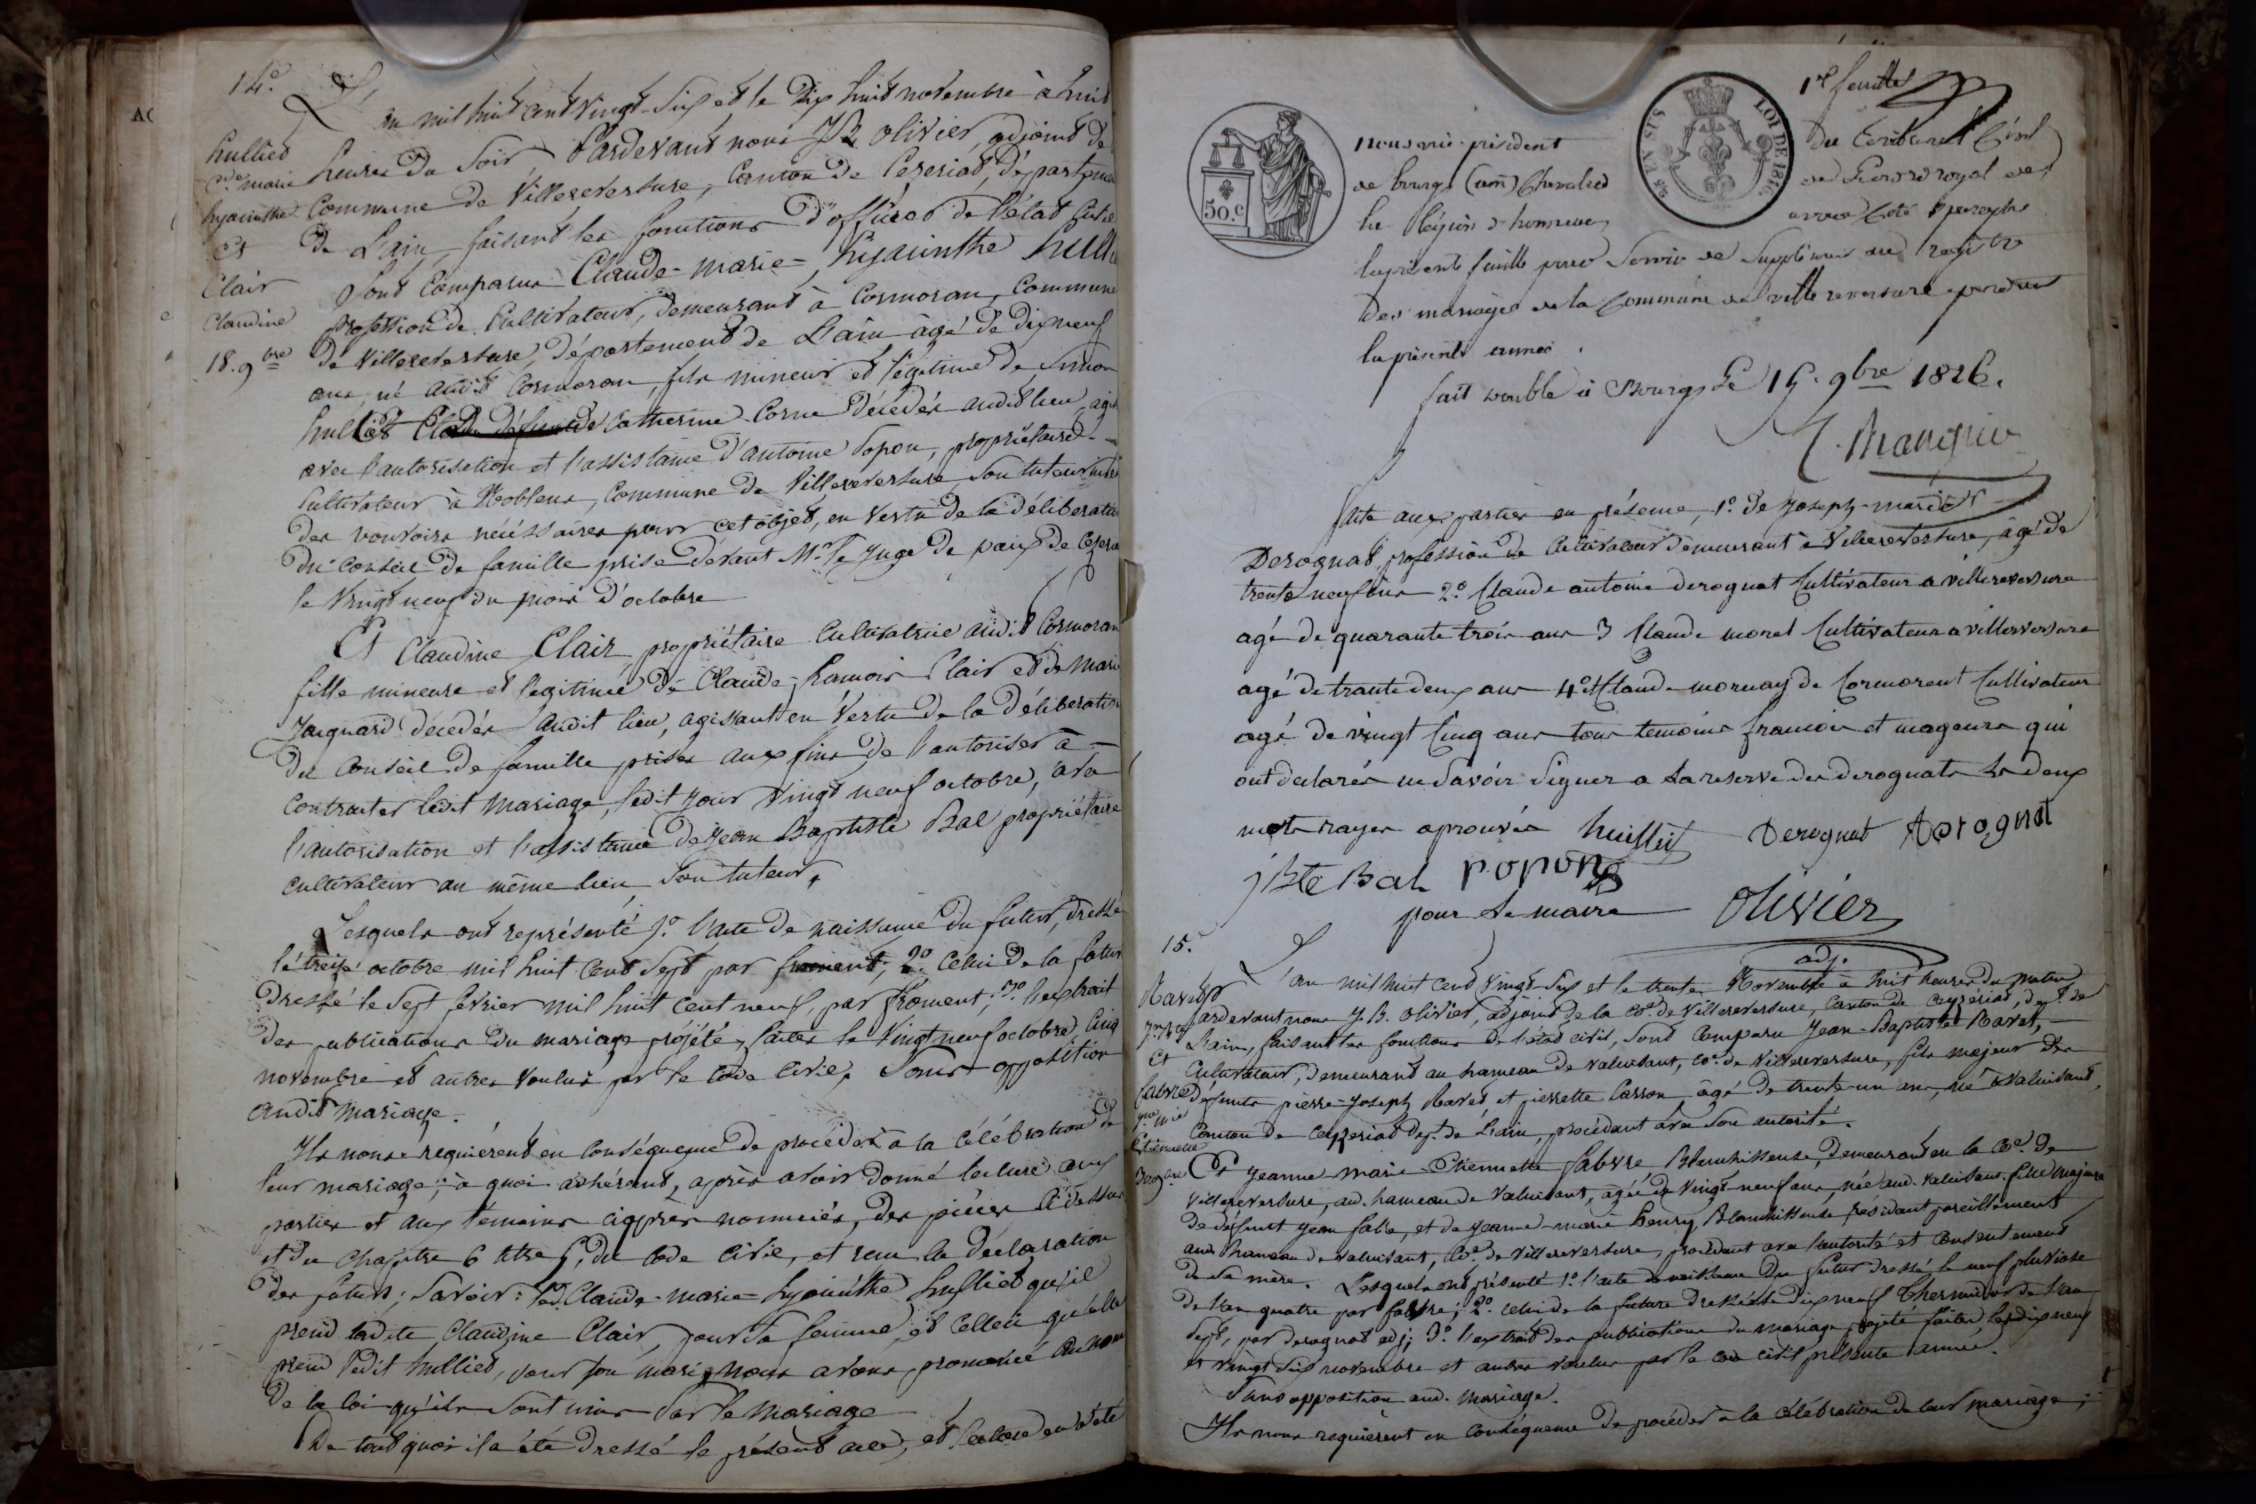 14.°
Hulliet
Cde marie
hyacinthe
Et
Clair
Claudine
18. 9bre
L'an mil huit cent vingt-six et le dix huit novembre à huit
heures du soir Pardevant nous JB olivier, adjoint de
Commune de Villereversure, Canton de Ceseriat, départeme
de L'ain, faisant les fonctions d'officier de l'état civil
sont comparus Claude-marie-hyacinthe hulli
profession de Cultivateur, demeurant à Cosmoran, Commune
de Villereversure, département de L'ain âgé de dix neuf
ans, né audit Cosmoran, fils mineur et légitime de Simon
hulliet et de Catherine Corne décédés audit lieu, agis
avec l'autorisation et l'assistance d'antoine Popon, propriétaire
Cultivateur à Noblens, Commune de Villereversure son tuteur muni
des pouvoirs nécéssaires pour cet objet, en vertu de la délibératio
du Conseil de famille prise devant Mr le Juge de paix de Cesera
le Vingt neuf du mois d'octobre
Et Claudine Clair, propriétaire Cultivatrice audit Cosmoran
fille mineure et légitime de Claude-francois Clair et de Marie
Jacquard décédés audit lieu, agissant en vertu de la délibératio
du Conseil de famille prise aux fins de l'autoriser à
contracter ledit mariage, ledit jour vingt neuf octobre, avec
l'autorisation et l'assistance de Jean Baptiste Bal propriétaire
cultivateur au même lieu son tuteur,
Lesquels ont représenté 1.° l'acte de naissance du futur, dressé
le treize octobre mil huit cent sept par froment; 2.° celui de la futur
dressé le sept février mil huit cent neuf, par froment; 3.° l'extrait
des publications du mariage projété, faites le vingt neuf octobre, cinq
novembre et autres voulus par le Code civil, sans opposition
audit mariage.
Ils nous requièrent en conséquence de procéder à la célébration de
leur mariage; à quoi adhérant, après avoir donné lecture aux
parties et aux témoins ciaprès nommés, des pièces ci dessus
et du chapitre 6 titre 5, du Code civil, et reçu la déclaration
des futurs; Savoir: led. Claude-marie-hyacinthe hulliet qu'il
prend ladite Claudine Clair, pour sa femme; et celleci qu'elle
prend ledit hulliet, pour son mari, nous avons prononcé au nom
de la loi qu'ils sont unis par le mariage
De tout quoi il a été dressé le présent acte, et lecture en a été
50.c
25 EN SUS
LOI DE 1816.
1re feuille
nous vice-président
du tribunal Civil
de bourg (ain) Chevalier
de l'ordre royal de
la légion d'honneur,
avons coté & paraphé
la présente feuille pour servir de supplément au registre
des mariages de la Commune de villereversure pendant
la présente année.
fait double à Bourg le 15. 9bre 1826.
faite aux parties en présence, 1.° de Joseph-marie
Derognat, profession de Cultivateur demeurant à Villereversure, âgé de
trente neuf ans 2.° Claude antoine derognat Cultivateur a villereversure
agé de quarante trois ans 3 Claude morel Cultivateur a villereversure
agé de trante deux ans 4.° et Claude mornay de Cormorent Cultivateur
agé de vingt cinq ans tous temoins francois et mageurs qui
ont declarés ne savoir signer a la reserve des derognats les deux
mots rayés aprouvés hulliet Derognat derognat
jBte Bal popon
pour le maire olivier
adj.
15.
Ravet
Jn Bte
Et
fabvre
Jne Mie
Etiennette
30 9bre
L'an mil huit cent vingt-six et le trente Novembre à huit heures du matin
Pardevant nous J. B. olivier, adjoint de la Ce de Villereversure, Canton de Ceyzériat, dept de
L'ain, faisant les fonctions de l'état civil, sont comparu Jean-Baptiste Ravet,
Cultivateur, demeurant au hameau de valuisant, Ce de Villereversure, fils majeur des
défunts pierre-Joseph Ravet, et pierrette Casson, âgé de trente-un ans, né à valuisant,
Canton de Ceyzeriat dept de L'ain, procédant avec son autorité.
Et Jeanne marie-Etiennette fabvre Blanchisseuse, demeurant en la Ce de
Villereversure, au. hameau de valuisant, âgée de vingt-neuf ans, née aud. valuisant fille majeure
de défunt jean fabre, et de jeanne-marie henry, Blanchisseuse résidant pareillement
aud. hameau de valuisant, Ce de Villereversure, procédant avec l'autorité et consentement
de sa mère. Lesquels ont présenté 1.° l'acte de naissance du futur dressé le neuf pluviose
de l'an quatre par fabvre; 2.° celui de la future dressé le dix neuf thermidor de l'an
sept, par derognat adj; 3.° l'extrait des publications du mariage projeté faites, les dix neuf
et vingt six novembre et autres voulus par le code civil présente année.
Sans opposition aud. mariage.
Ils nous requièrent en conséquence de procéder à la célébration de leur mariage;